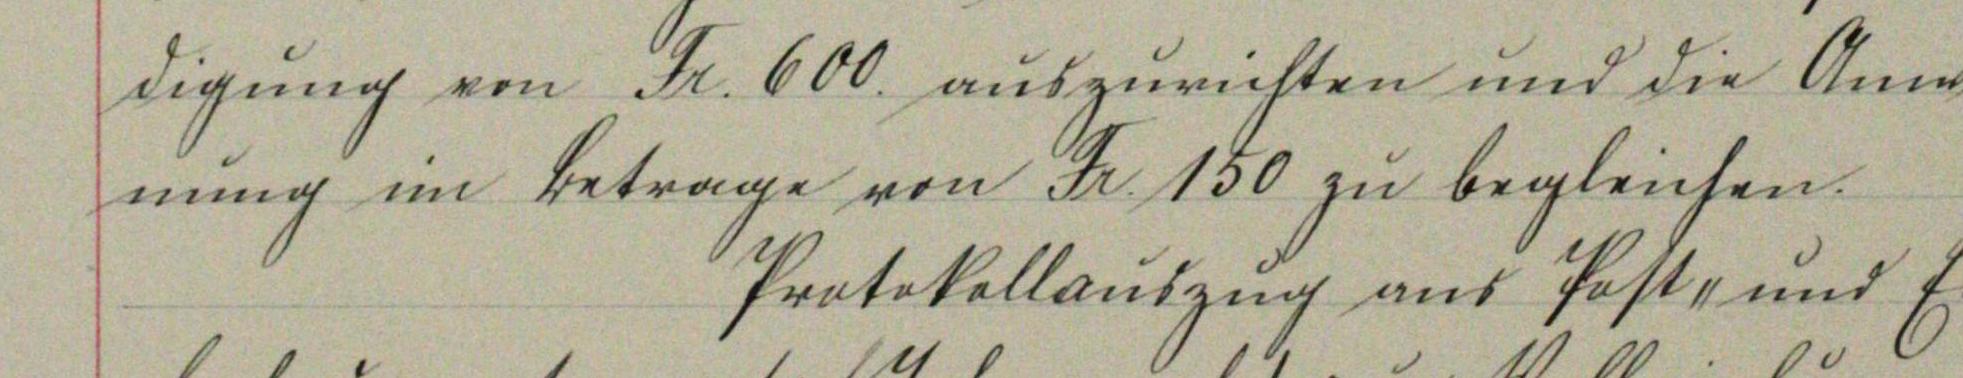 digung von Fr. 600. auszurichten und die
nung im Betrage von Fr. 150 zu begleichen.
Protokollauszug ans Post- und